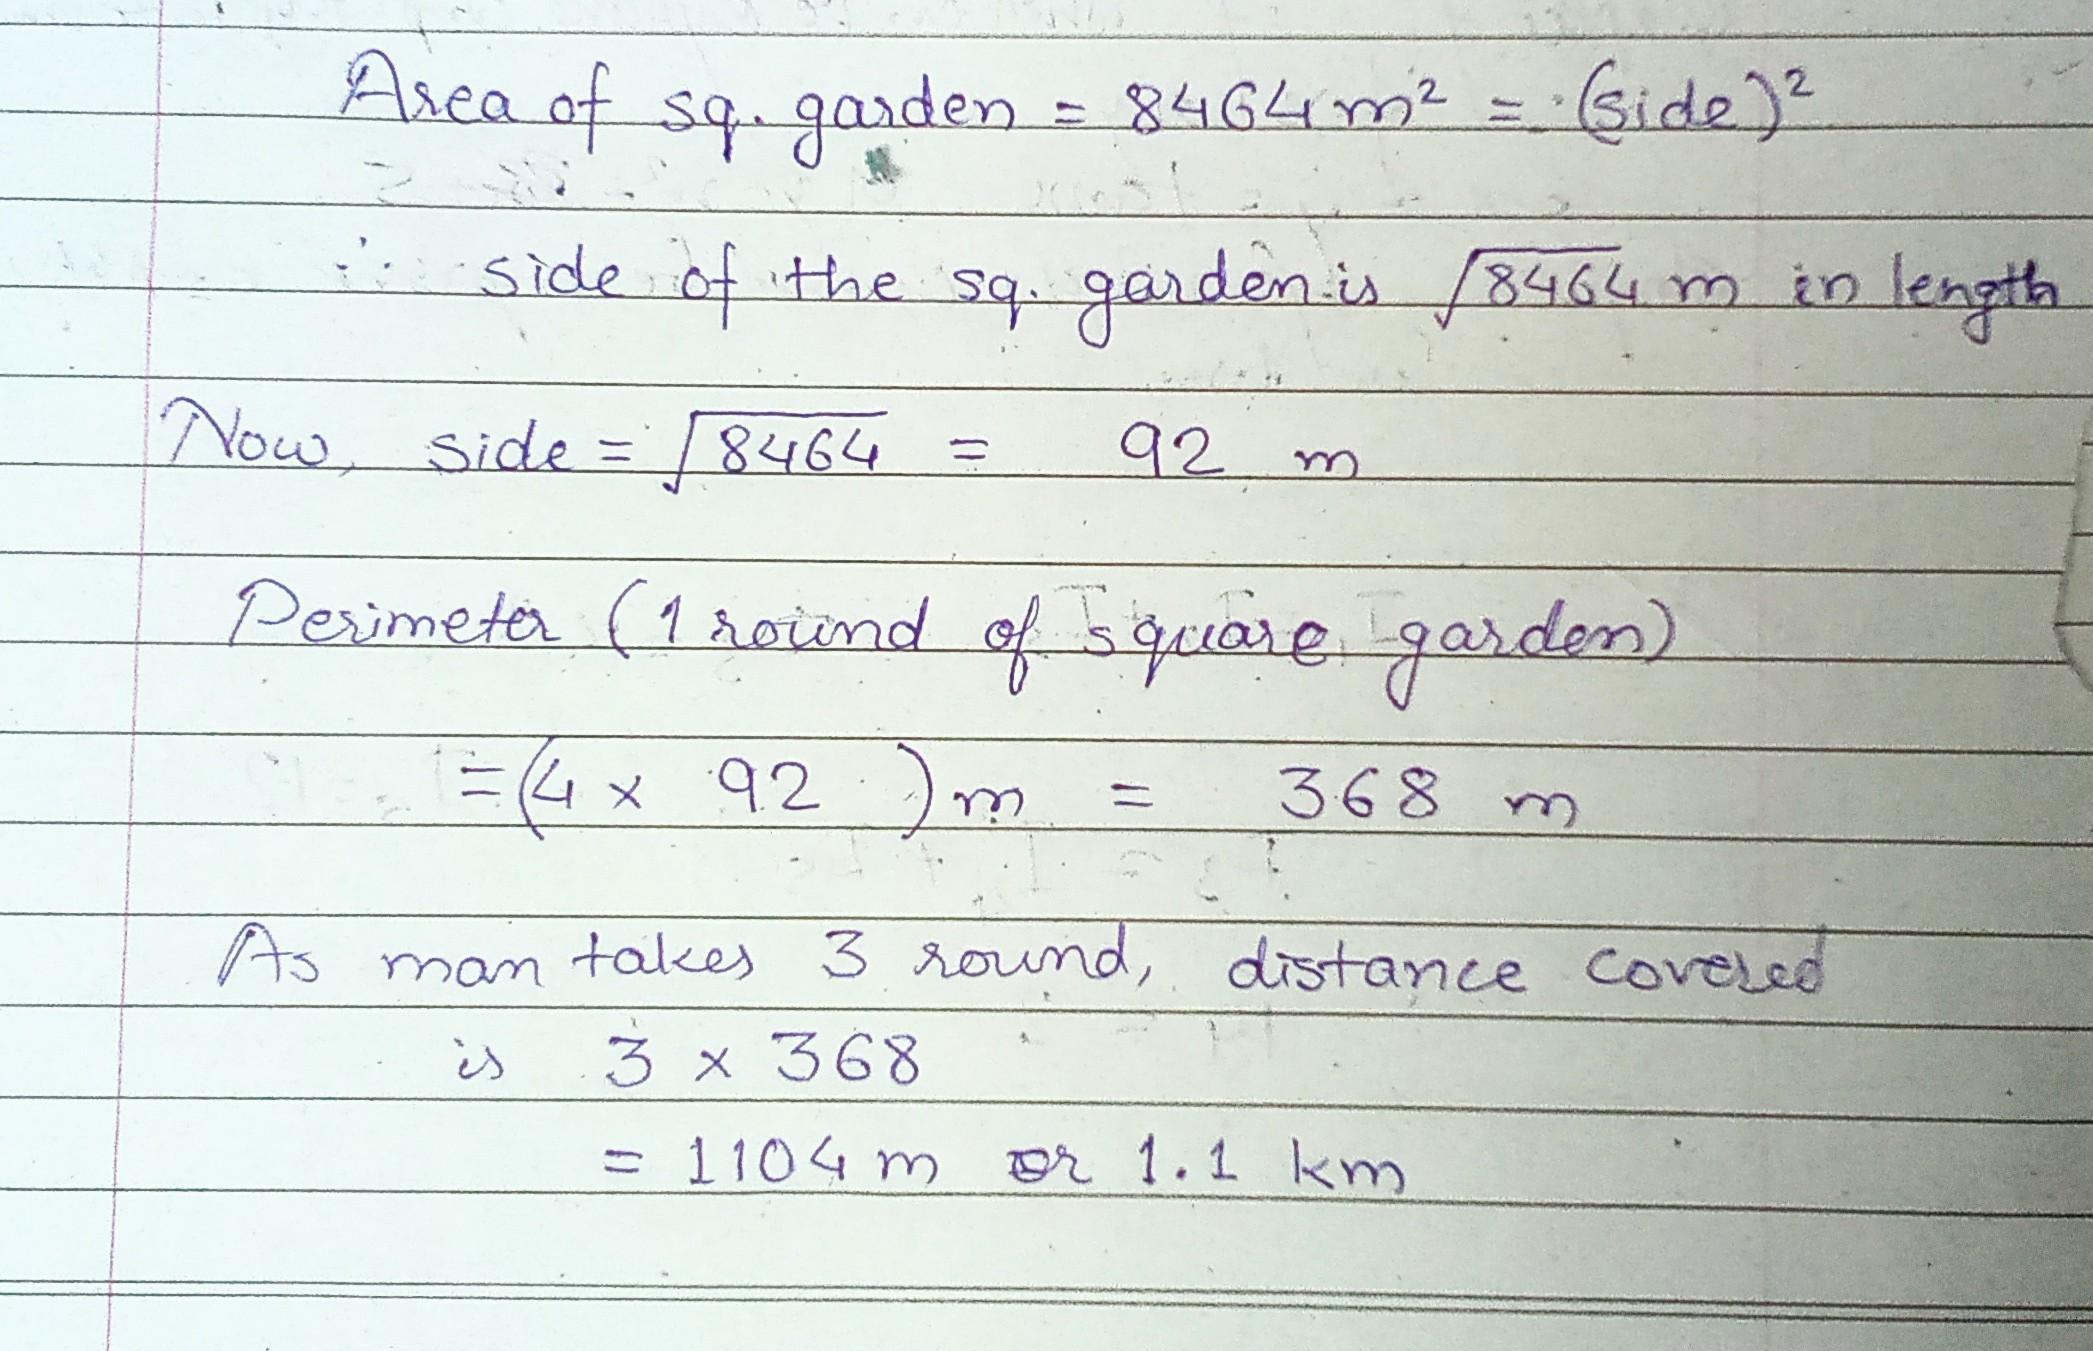 Area of sq. garden = 8464 m² = (side)²
∴ side of the sq. garden is √8464 m in length
Now, side = √8464 = 92 m
Perimeter (1 round of square garden)
= (4 x 92 ) m = 368 m
As man takes 3 round, distance covered
is 3 x 368
= 1104 m or 1.1 km